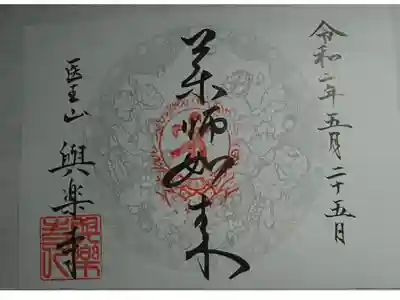 令和二年五月二十五日
薬師如来
医王山 與楽寺